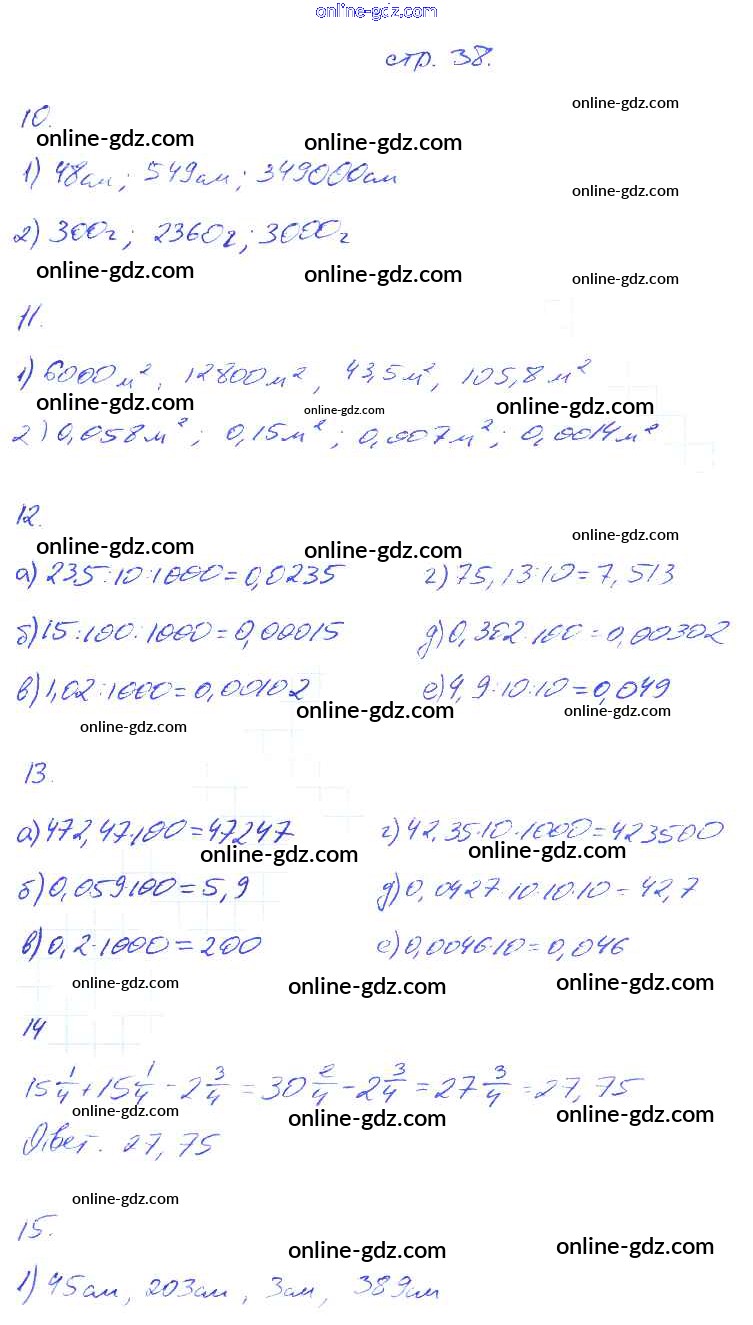 online-gdz.com
стр. 38.
online-gdz.com
10.
online-gdz.com online-gdz.com
1) 48см; 549см; 349000см
online-gdz.com
2) 300г; 2360г; 3000г
online-gdz.com online-gdz.com online-gdz.com
11.
1) 6000м², 12800м², 43,5м², 105,8м²
online-gdz.com online-gdz.com online-gdz.com
2) 0,058м²; 0,15м²; 0,007м²; 0,0014м²
12.
online-gdz.com online-gdz.com online-gdz.com
а) 235:10:1000=0,0235 г) 75,13:10=7,513
б) 15:100:1000=0,00015 д) 0,302:100=0,00302
в) 1,02:1000=0,00102 е) 4,9:10:10=0,049
online-gdz.com online-gdz.com online-gdz.com
13.
а) 472,47·100=47247 г) 42,35·10·1000=423500
online-gdz.com online-gdz.com
б) 0,059·100=5,9 д) 0,0427·10·10·10=42,7
в) 0,2·1000=200 е) 0,0046·10=0,046
online-gdz.com online-gdz.com online-gdz.com
14
15 1/4 + 15 1/4 - 2 3/4 = 30 2/4 - 2 3/4 = 27 3/4 = 27,75
online-gdz.com online-gdz.com online-gdz.com
Ответ. 27,75
online-gdz.com
15.
online-gdz.com online-gdz.com
1) 45см, 203см, 3см, 389см